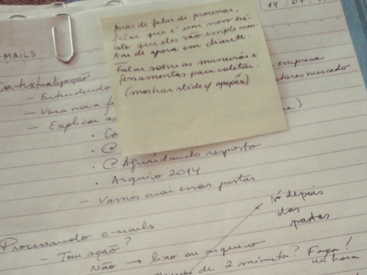 14/0
E-MAILS
Antes de falar de processar,
falar que é um novo há-
bito que eles vão implemen-
tar de agora em diante.
Falar sobre as maneiras e
ferramentas para coletar.
(mostrar slide c/ opções)
Contextualização
- Entendendo
empresa
- Uma nova
mercado
- Explicar a
@Aguardando resposta
• Arquivo 2014
- Vamos criar essas pastas
só depois
das
pastas
Processando e-mails
- Tem ação?
Não → lixo ou arquivo
de 2 minutos? Faça!
na hora